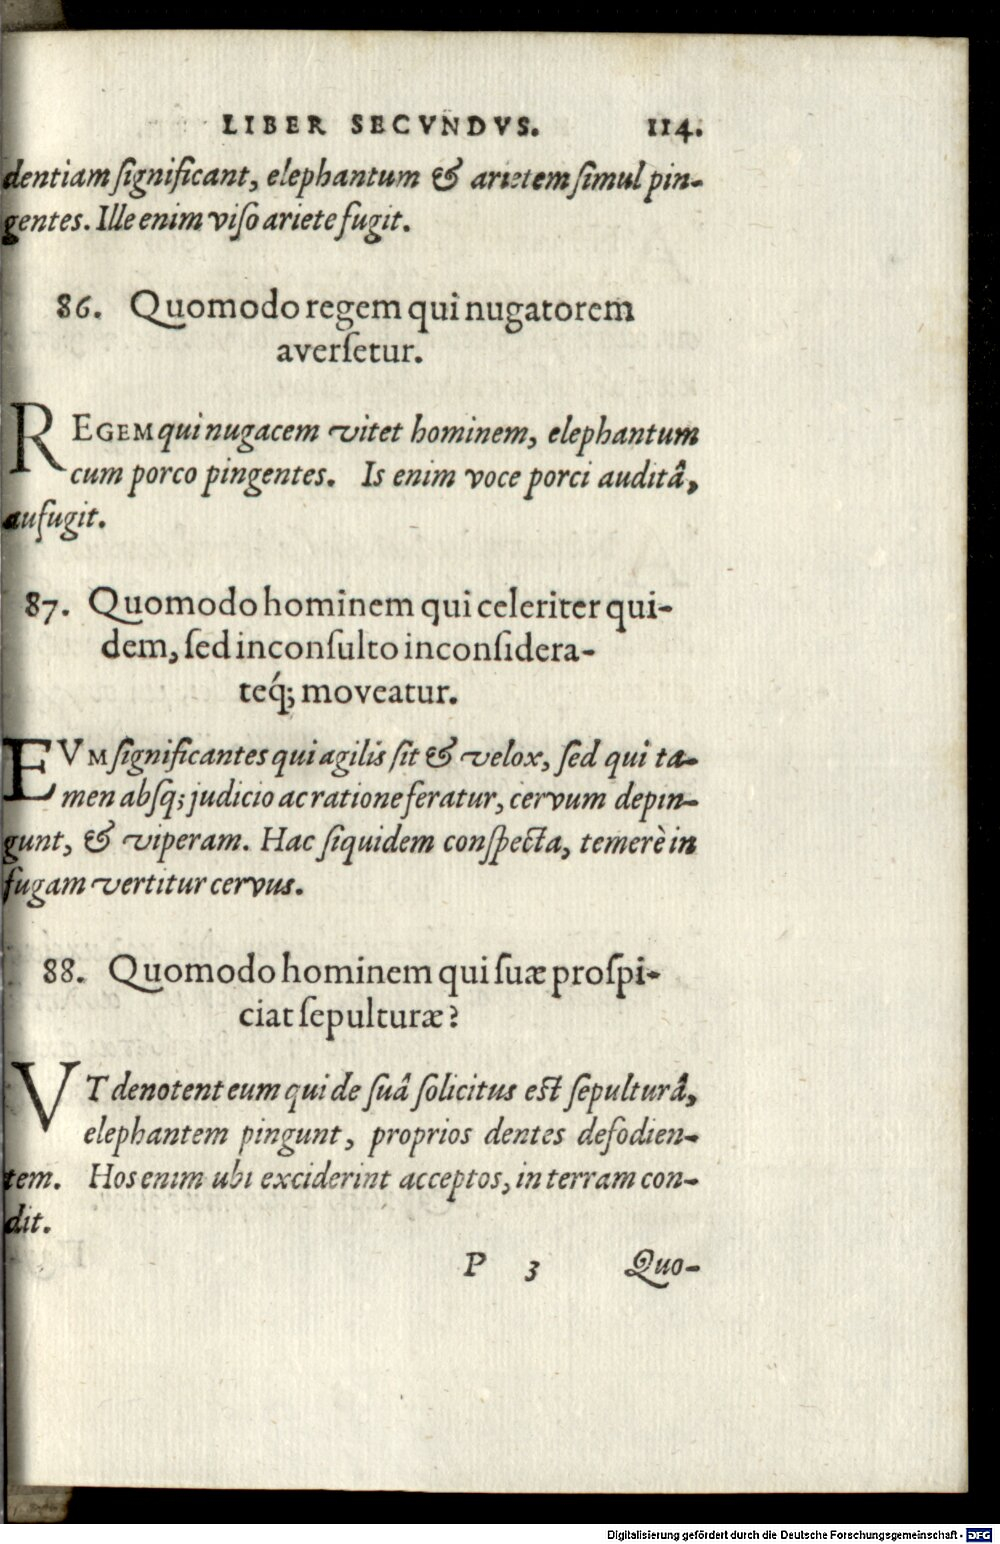 LIBER SECVNDVS. 114.
dentiam ſignificant, elephantum & arietem ſimul pin-
gentes. Ille enim viſo ariete fugit.
86. Quomodo regem qui nugatorem
averſetur.
REGEM qui nugacem vitet hominem, elephantum
cum porco pingentes. Is enim voce porci auditâ,
aufugit.
87. Quomodo hominem qui celeriter qui-
dem, ſed inconſulto inconſidera-
teq́; moveatur.
EVM ſignificantes qui agilis ſit & velox, ſed qui ta-
men abſq; judicio ac ratione feratur, cervum depin-
gunt, & viperam. Hac ſiquidem conſpecta, temerè in
fugam vertitur cervus.
88. Quomodo hominem qui ſuæ proſpi-
ciat ſepulturæ?
VT denotent eum qui de ſuâ ſolicitus eſt ſepulturâ,
elephantem pingunt, proprios dentes defodien-
tem. Hos enim ubi exciderint acceptos, in terram con-
dit.
P 3 Quo-
Digitalisierung gefördert durch die Deutsche Forschungsgemeinschaft - DFG